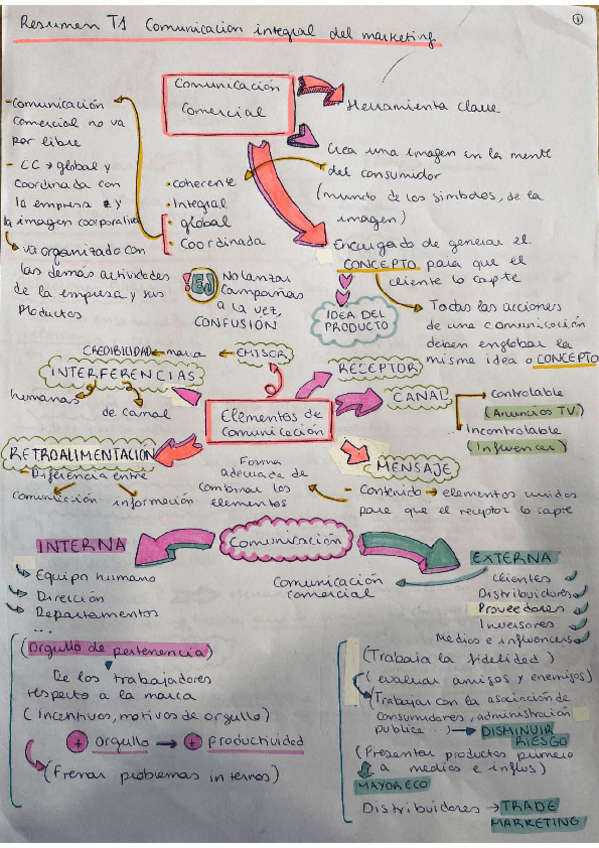 Resumen T1 Comunicacion integral del marketing
①
Comunicación
Comercial
Herramienta clave
Crea una imagen en la mente
del consumidor
(mundo de los símbolos, de la
imagen)
Encargado de generar el
CONCEPTO para que el
cliente lo capte
IDEA DEL
PRODUCTO
Todas las acciones
de una comunicación
deben englobar la
misma idea o CONCEPTO
· coherente
· Integral
· global
· Coordinada
- Comunicación
comercial no va
por libre
- CC → global y
coordinada con
la empresa y
la imagen coorporativa
va organizado con
las demás actividades
de la empresa y sus
productos
EJ
No lanzar
campañas
a la vez,
CONFUSIÓN
Elementos de
comunicación
EMISOR
marca
CREDIBILIDAD
INTERFERENCIAS
humanas
de canal
RECEPTOR
CANAL
Controlable
(Anuncios TV)
Incontrolable
(Influencer)
RETROALIMENTACIÓN
- Diferencia entre
comunicación información
MENSAJE
- Contenido → elementos unidos
para que el receptor lo capte
Forma
adecuada de
combinar los
elementos
Comunicación
INTERNA
Equipo humano
Dirección
Departamentos
...
(Orgullo de pertenencia)
De los trabajadores
respecto a la marca
(Incentivos, motivos de orgullo)
+ orgullo → + productividad
(Frenar problemas internos)
EXTERNA
Comunicación
comercial
Clientes
Distribuidores
Proveedores
Inversores
Medios e influencers
(Trabaja la fidelidad)
(evaluar amigos y enemigos)
(Trabajar con la asociación de
consumidores, administración
publica ...) → DISMINUIR
RIESGO
(Presentar productos primero
a medios e influs)
MAYOR ECO
Distribuidores → TRADE
MARKETING